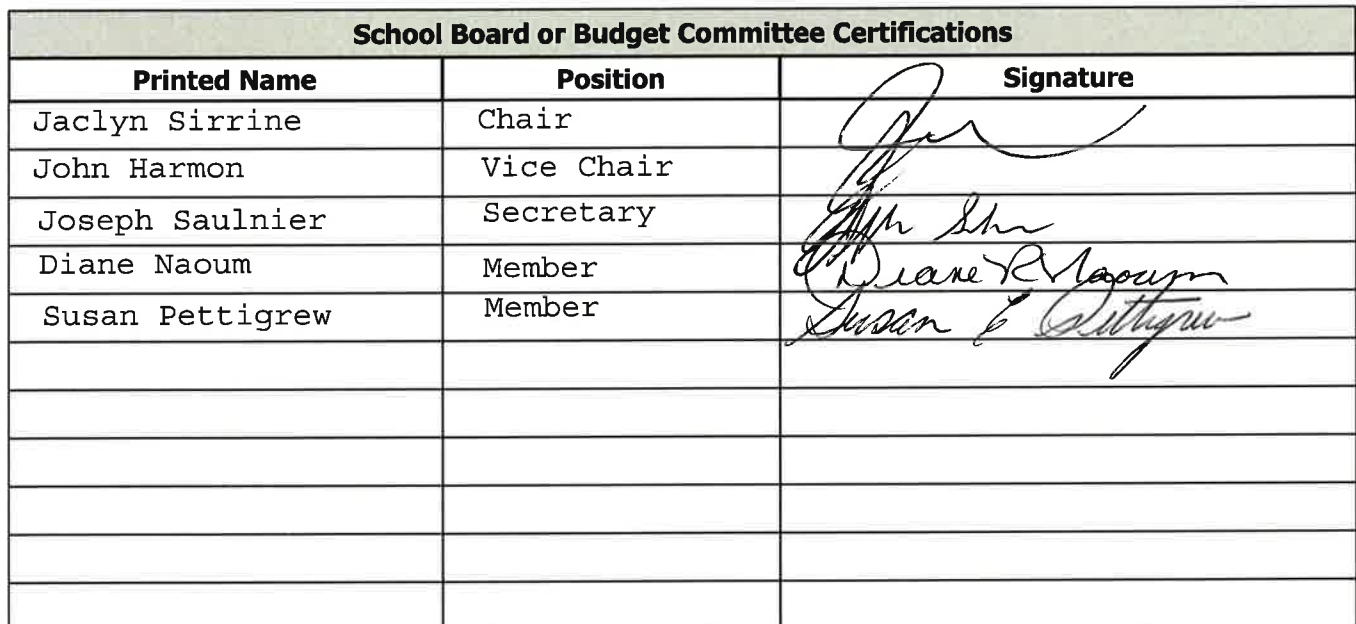 School Board or Budget Committee Certifications
Printed Name Position Signature
Jaclyn Sirrine Chair
John Harmon Vice Chair
Joseph Saulnier Secretary
Diane Naoum Member Diane R Naoum
Susan Pettigrew Member Susan E Pettigrew